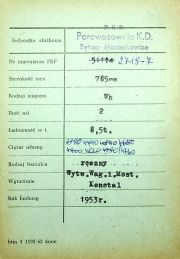 P.K.P.
Jednostka służbowa
Parowozownia K.D.
Bytom-Maciejkowice
Nr inwentarza PKP
Szerokość toru 785mm
Rodzaj wagonu Wh
Ilość osi 2
Ładowność w t. 8,5t.
Ciężar własny
Rodzaj hamulca ręczny
Wytwórnia Wytw.Wag.i Most.
Konstal
Rok budowy 1953r.